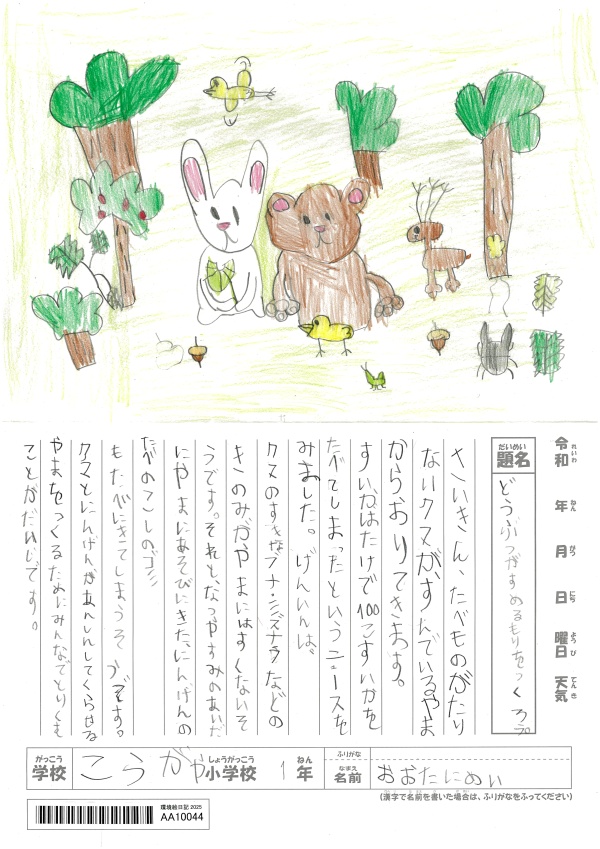 令和 れいわ 年 ねん 月 がつ 日 にち 曜日 ようび 天気 てんき
題名 だいめい
どうぶつがすめるもりをつくろう
さいきん、たべものがたり
ないクマがすんでいるやま
からおりてきます。
すいかばたけで100こすいかを
たべてしまったというニュースを
みました。げんいんは、
クマのすきなブナ・ミズナラなどの
きのみがやまにはすくないそ
うです。それと、なつやすみのあいだ
にやまにあそびにきた、にんげんの
たべのこしのゴミ
もたべにきてしまうそうです。
クマとにんげんがあんしんしてくらせる
やまをつくるためにみんなでとりくむ
ことがだいじです。
学校 がっこう こうがや 小学校 しょうがっこう 1年 ねん
ふりがな
名前 なまえ おおたにめい
(漢字で名前を書いた場合は、ふりがなをふってください)
環境絵日記 2025
AA10044